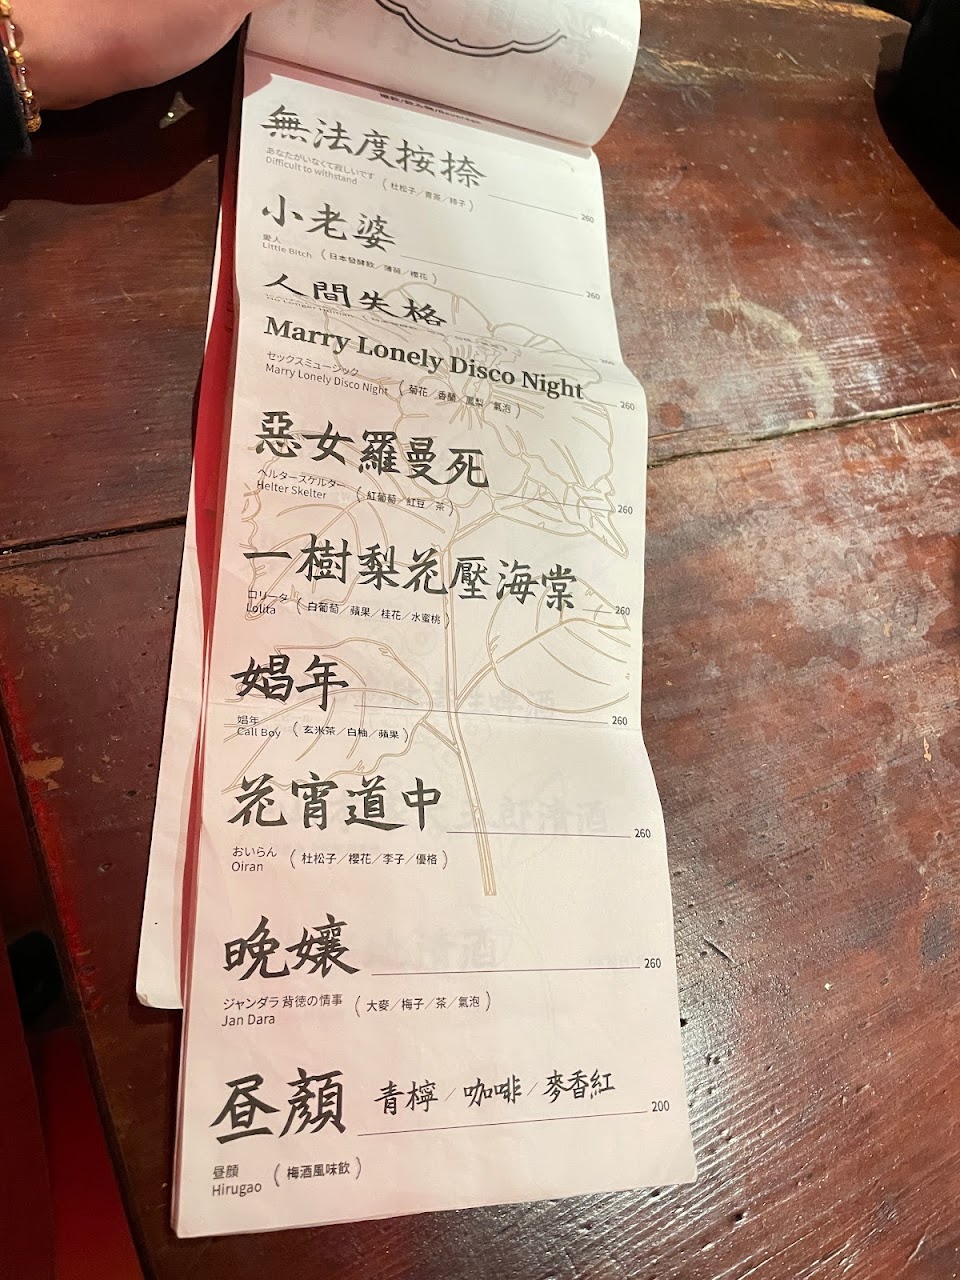 無法度按捺
あなたがいなくて寂しいです
Difficult to withstand （杜松子／青茶／柿子） 260
小老婆
愛人
Little Bitch （日本發酵飲／薄荷／櫻花） 260
人間失格
No Longer Human
Marry Lonely Disco Night
セックスミュージック
Marry Lonely Disco Night （菊花／香蘭／鳳梨／氣泡） 260
惡女羅曼死
ヘルタースケルター
Helter Skelter （紅葡萄／紅豆／茶） 260
一樹梨花壓海棠
ロリータ
Lolita （白葡萄／蘋果／桂花／水蜜桃） 260
娼年
娼年
Call Boy （玄米茶／白柚／蘋果） 260
花宵道中 260
おいらん
Oiran （杜松子／櫻花／李子／優格）
晚孃 260
ジャンダラ 背徳の情事
Jan Dara （大麥／梅子／茶／氣泡）
昼顏 青檸／咖啡／麥香紅 200
昼顔
Hirugao （梅酒風味飲）